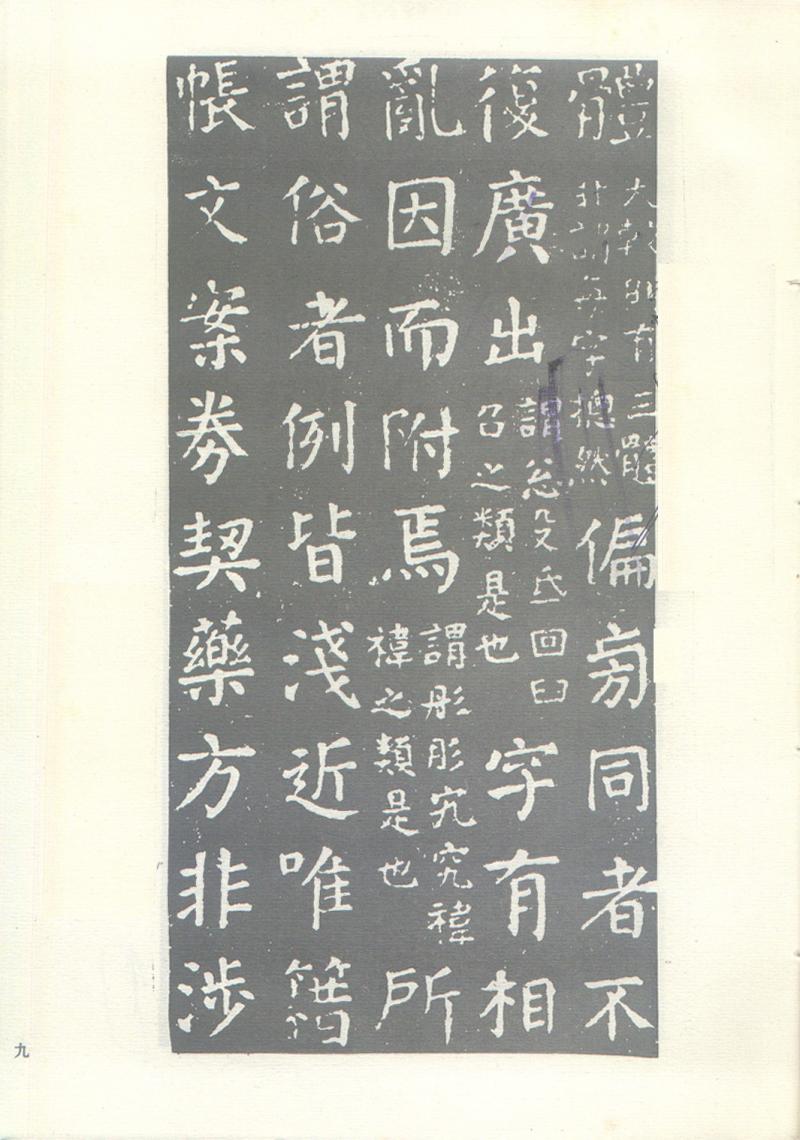 體
大較則有三體
非謂每字摠然
偏旁同者不
復廣出
謂忩殳氐回臼
召之類是也
字有相
亂因而附焉
謂彤肜宄究禕
褘之類是也
所
謂俗者例皆淺近唯籍
帳文案券契藥方非涉
九